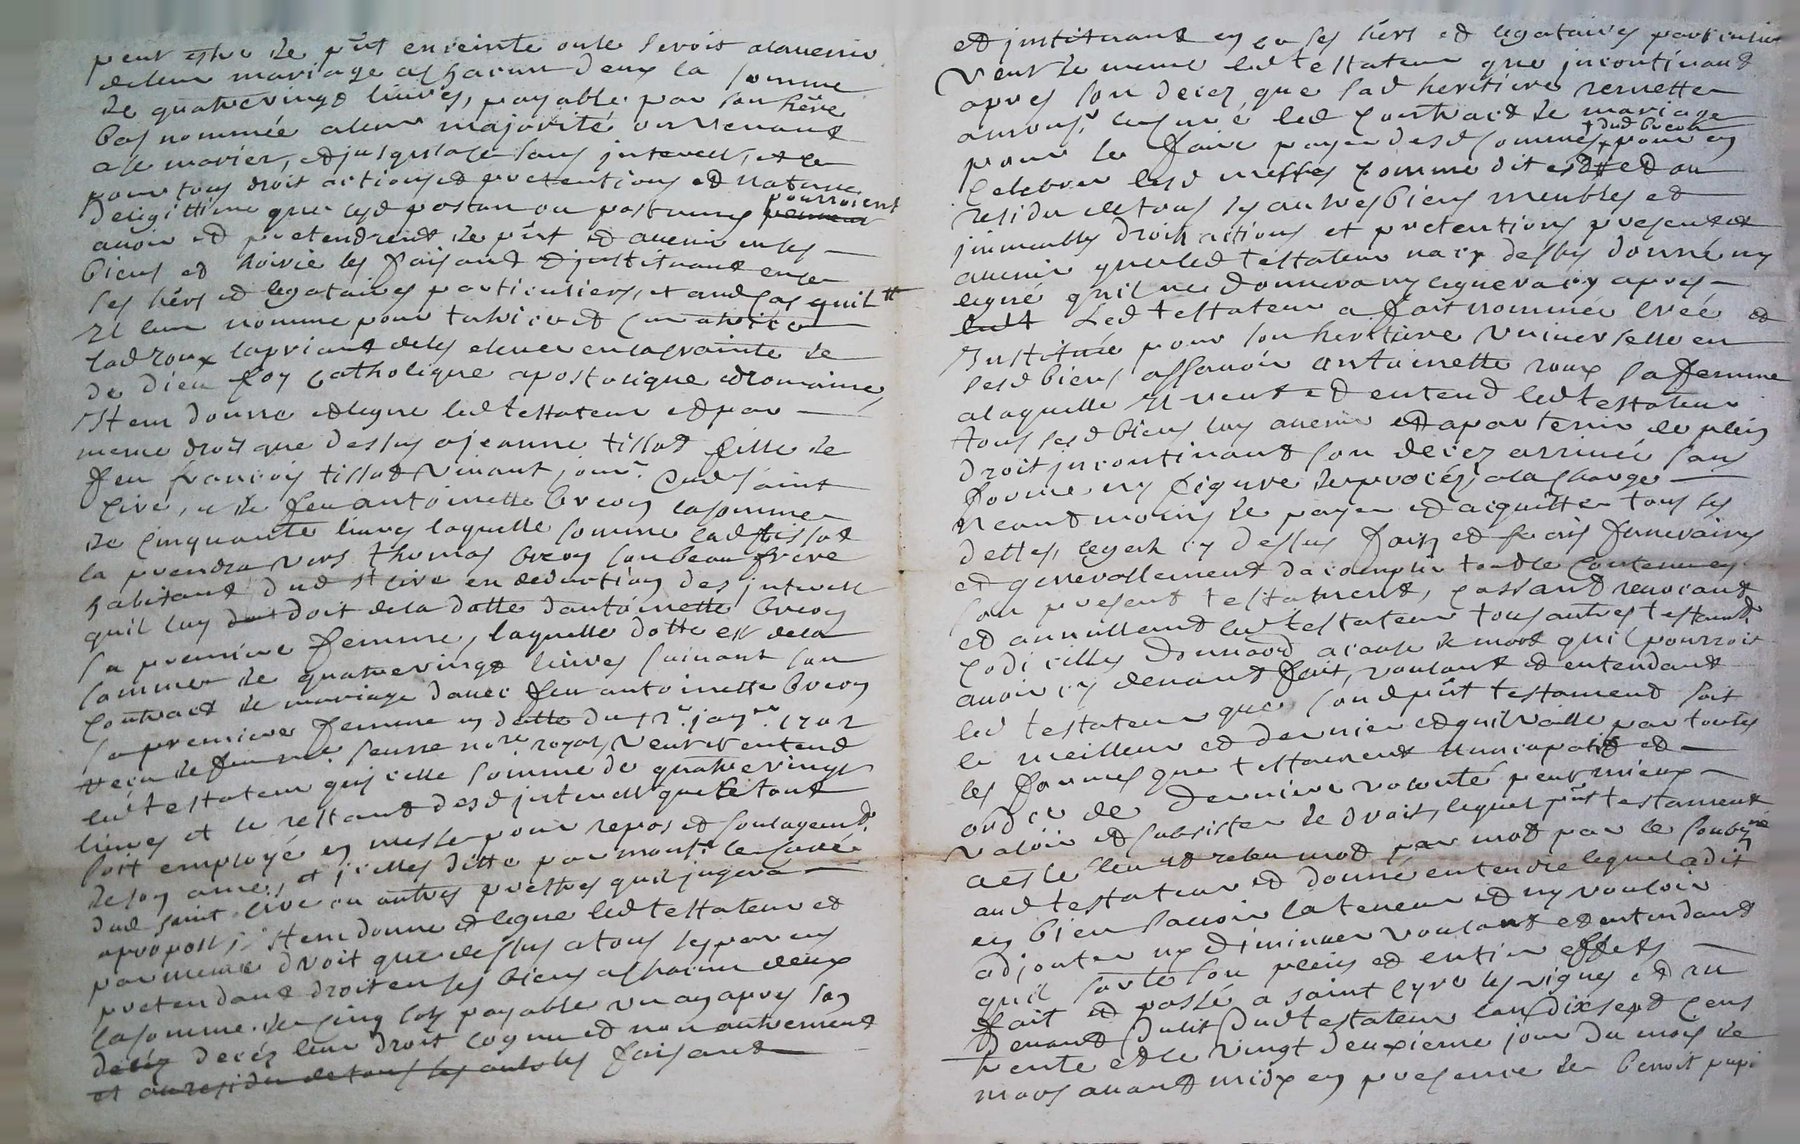 peut estre de pñt enceinte ou le seroit alavenir
deleur mariage a chacun deux la somme
de quatre vingt livres, payable par son hẽre
bas nommée a leur majorité ou venant
a se marier, et jusqu'alors sans interest, et ce
pour tous droit actions et pretentions et nature
deligittime que lesd postan ou postumes pourroient
avoir et pretendrent de pñt et avenir en ses
biens et hoirie les faisant et jnstituant en ce
ses hẽrs et legataires particuliers, et aud cas quil
Il leur nomme pour tutrice et curatrice
lad roux la priant deles elever en la crainte de
de Dieu foy catholique apostolique et romaine
Item donne et legue led testateur et par
meme droit que dessus a jeanne tissot fille de
feu françois tissot vivant jour. dud saint
Cire, et de feu antoinette brecoy la somme
de cinquante livres laquelle somme lad tissot
la prendra vers thomas brecoy son beau frere
habitant dud st Cire en deduction des interest
quil luy doit de la dotte dantoinette brecoy
sa premiere femme, laquelle dotte est dela
somme de quatre vingt livres suivant son
contract de mariage avec feu antoinette brecoy
sa premiere femme en datte du janer. 1702
receu de nore. royal, veut et entend
led testateur qu'jcelle somme de quatre vingt
livres et le restant desd interest que le tout
soit employé en messe pour repos et soulagemt.
de son ame, et jcelles ditte par monsr. le Curé
dud saint Cire ou autres prestres quil jugera
apropost; Item donne et legue led testateur et
par meme droit que dessus a tous les parens
pretendant droit en ses biens a chacun deux
la somme de cinq sols payable un an apres son
decéz leur droit cognu et non autrement
et au residu de tous les autres les faisant
et jnstituant en ce ses hẽrs et legataires particuliers
Veut de meme led testateur que jncontinant
apres son decez que sad heritiere remette
aud sr. curé led contract de mariage
pour se faire payer desd sommes dud brecoy pour en
celebrer lesd messes comme dit est et au
residu de tous ses autres biens meubles et
jmmeubles droits actions et pretentions present et
avenir que led testateur na cy dessus donné ny
legué quil ne donnera ny leguera cy apres
Led testateur a fait nommé creé et
Institué pour son heritiere universelle en
sesd biens assavoir antoinette roux sa femme
a laquelle Il veut et entend led testateur
tous sesd biens luy avenir et apartenir de plein
droit jncontinant son decez arrivé sans
forme ny figure de procéz, a la charge
neantmoins de payer et acquitter tous ses
dettes, legats cy dessus faits et frais funeraires
et generallement dacomplir tout le contenu en
son present testament, cassant revocant
et annullant led testateur tous autres testament
codicilles donnaõn a cause de mort quil pourroit
avoir cy devant fait, voulant et entendant
led testateur que sond pñt testament soit
le meilleur et dernier et quil vaille par toutes
les formes que testament nuncupatif et
ordre de derniere volonté peut mieux
valoir et subsister de droit, lequel pñt testament
a esté leu et releu mot par mot par le soubné
aud testateur et donné entendre lequel a dit
en bien savoir la teneur et ny vouloir
adjouter ny diminuer voulant et entendant
quil sorte son plein et entier effets
fait et passé a saint Cyre les vignes et au
devant dulit dud testateur lan dix sept cens
trente et le vingt deuxieme jour du mois de
mars avant midy en presence de benoit